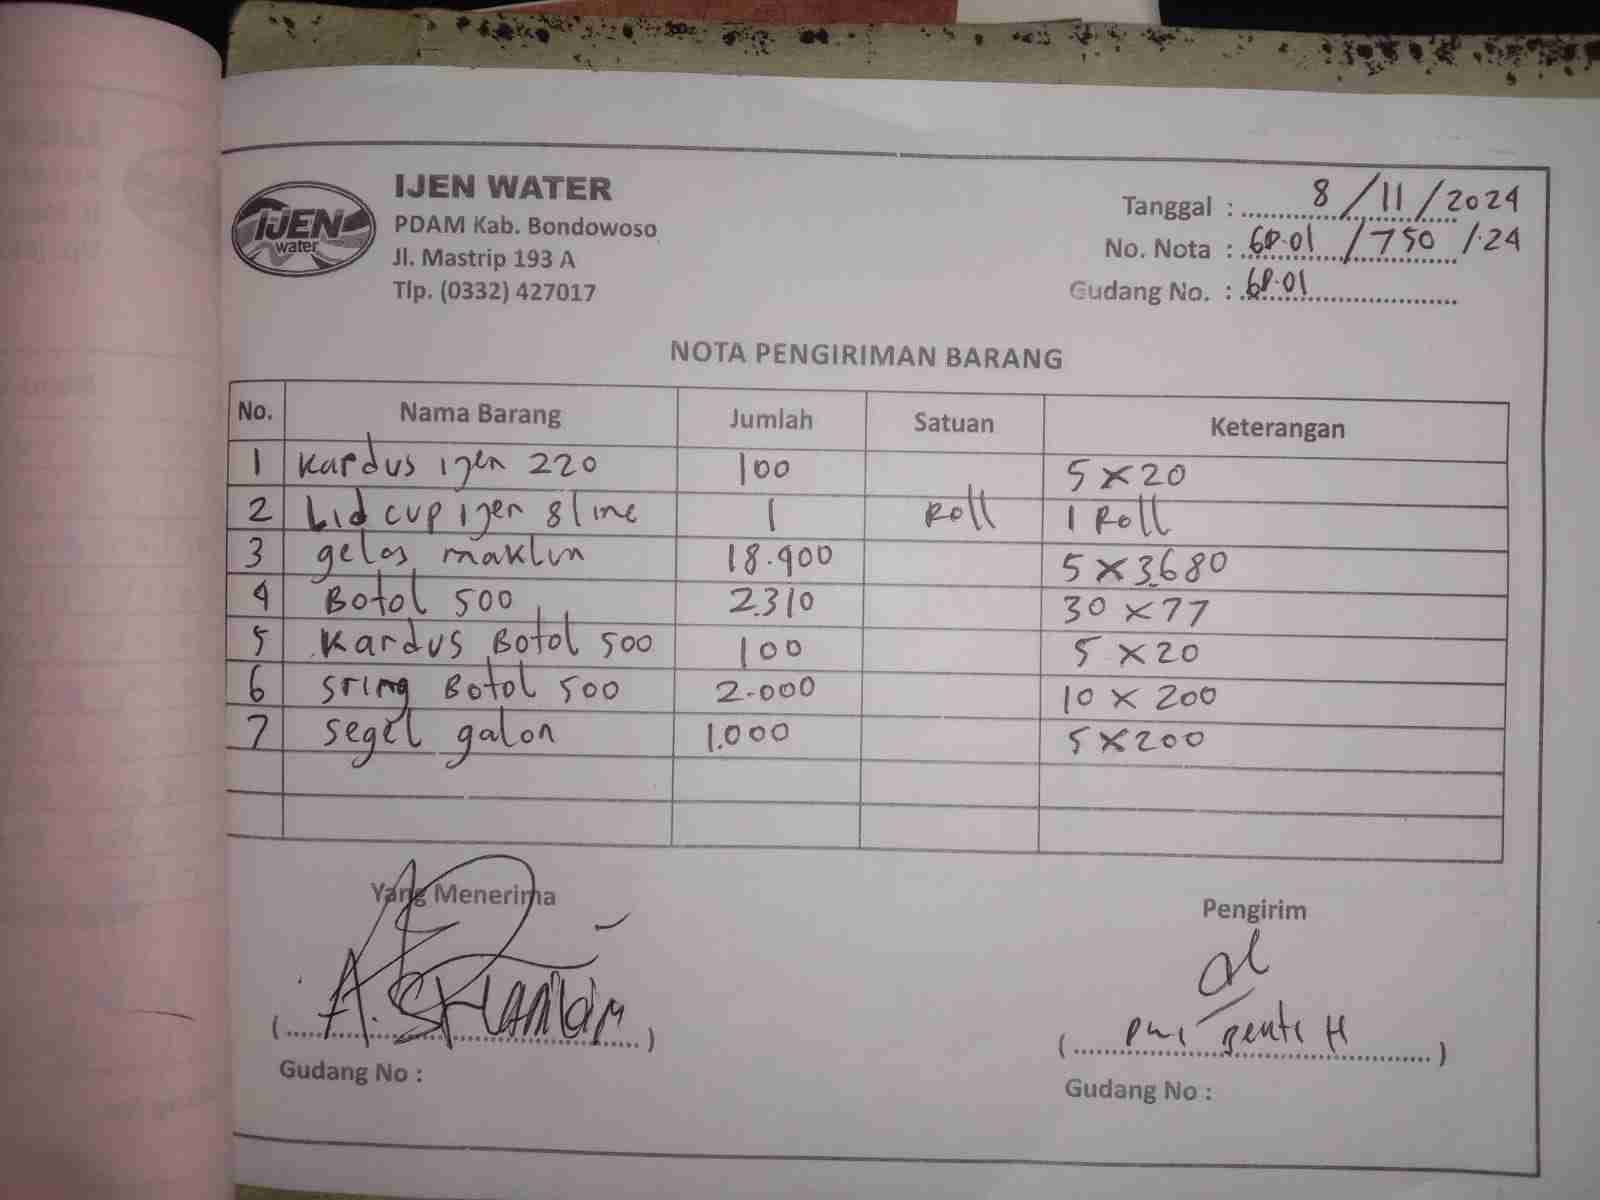 IJEN
water
IJEN WATER
PDAM Kab. Bondowoso
Jl. Mastrip 193 A
Tlp. (0332) 427017
Tanggal : 8 / 11 / 2024
No. Nota : GD.01 / 750 / 24
Gudang No. : GD.01
NOTA PENGIRIMAN BARANG
No. Nama Barang Jumlah Satuan Keterangan
1 Kardus ijen 220 100 5 x 20
2 Lid cup ijen 8 line 1 Roll 1 Roll
3 gelas maklun 18.400 5 x 3.680
4 Botol 500 2.310 30 x 77
5 Kardus Botol 500 100 5 x 20
6 sring Botol 500 2.000 10 x 200
7 segel galon 1.000 5 x 200
Yang Menerima Pengirim
Gudang No : Gudang No :